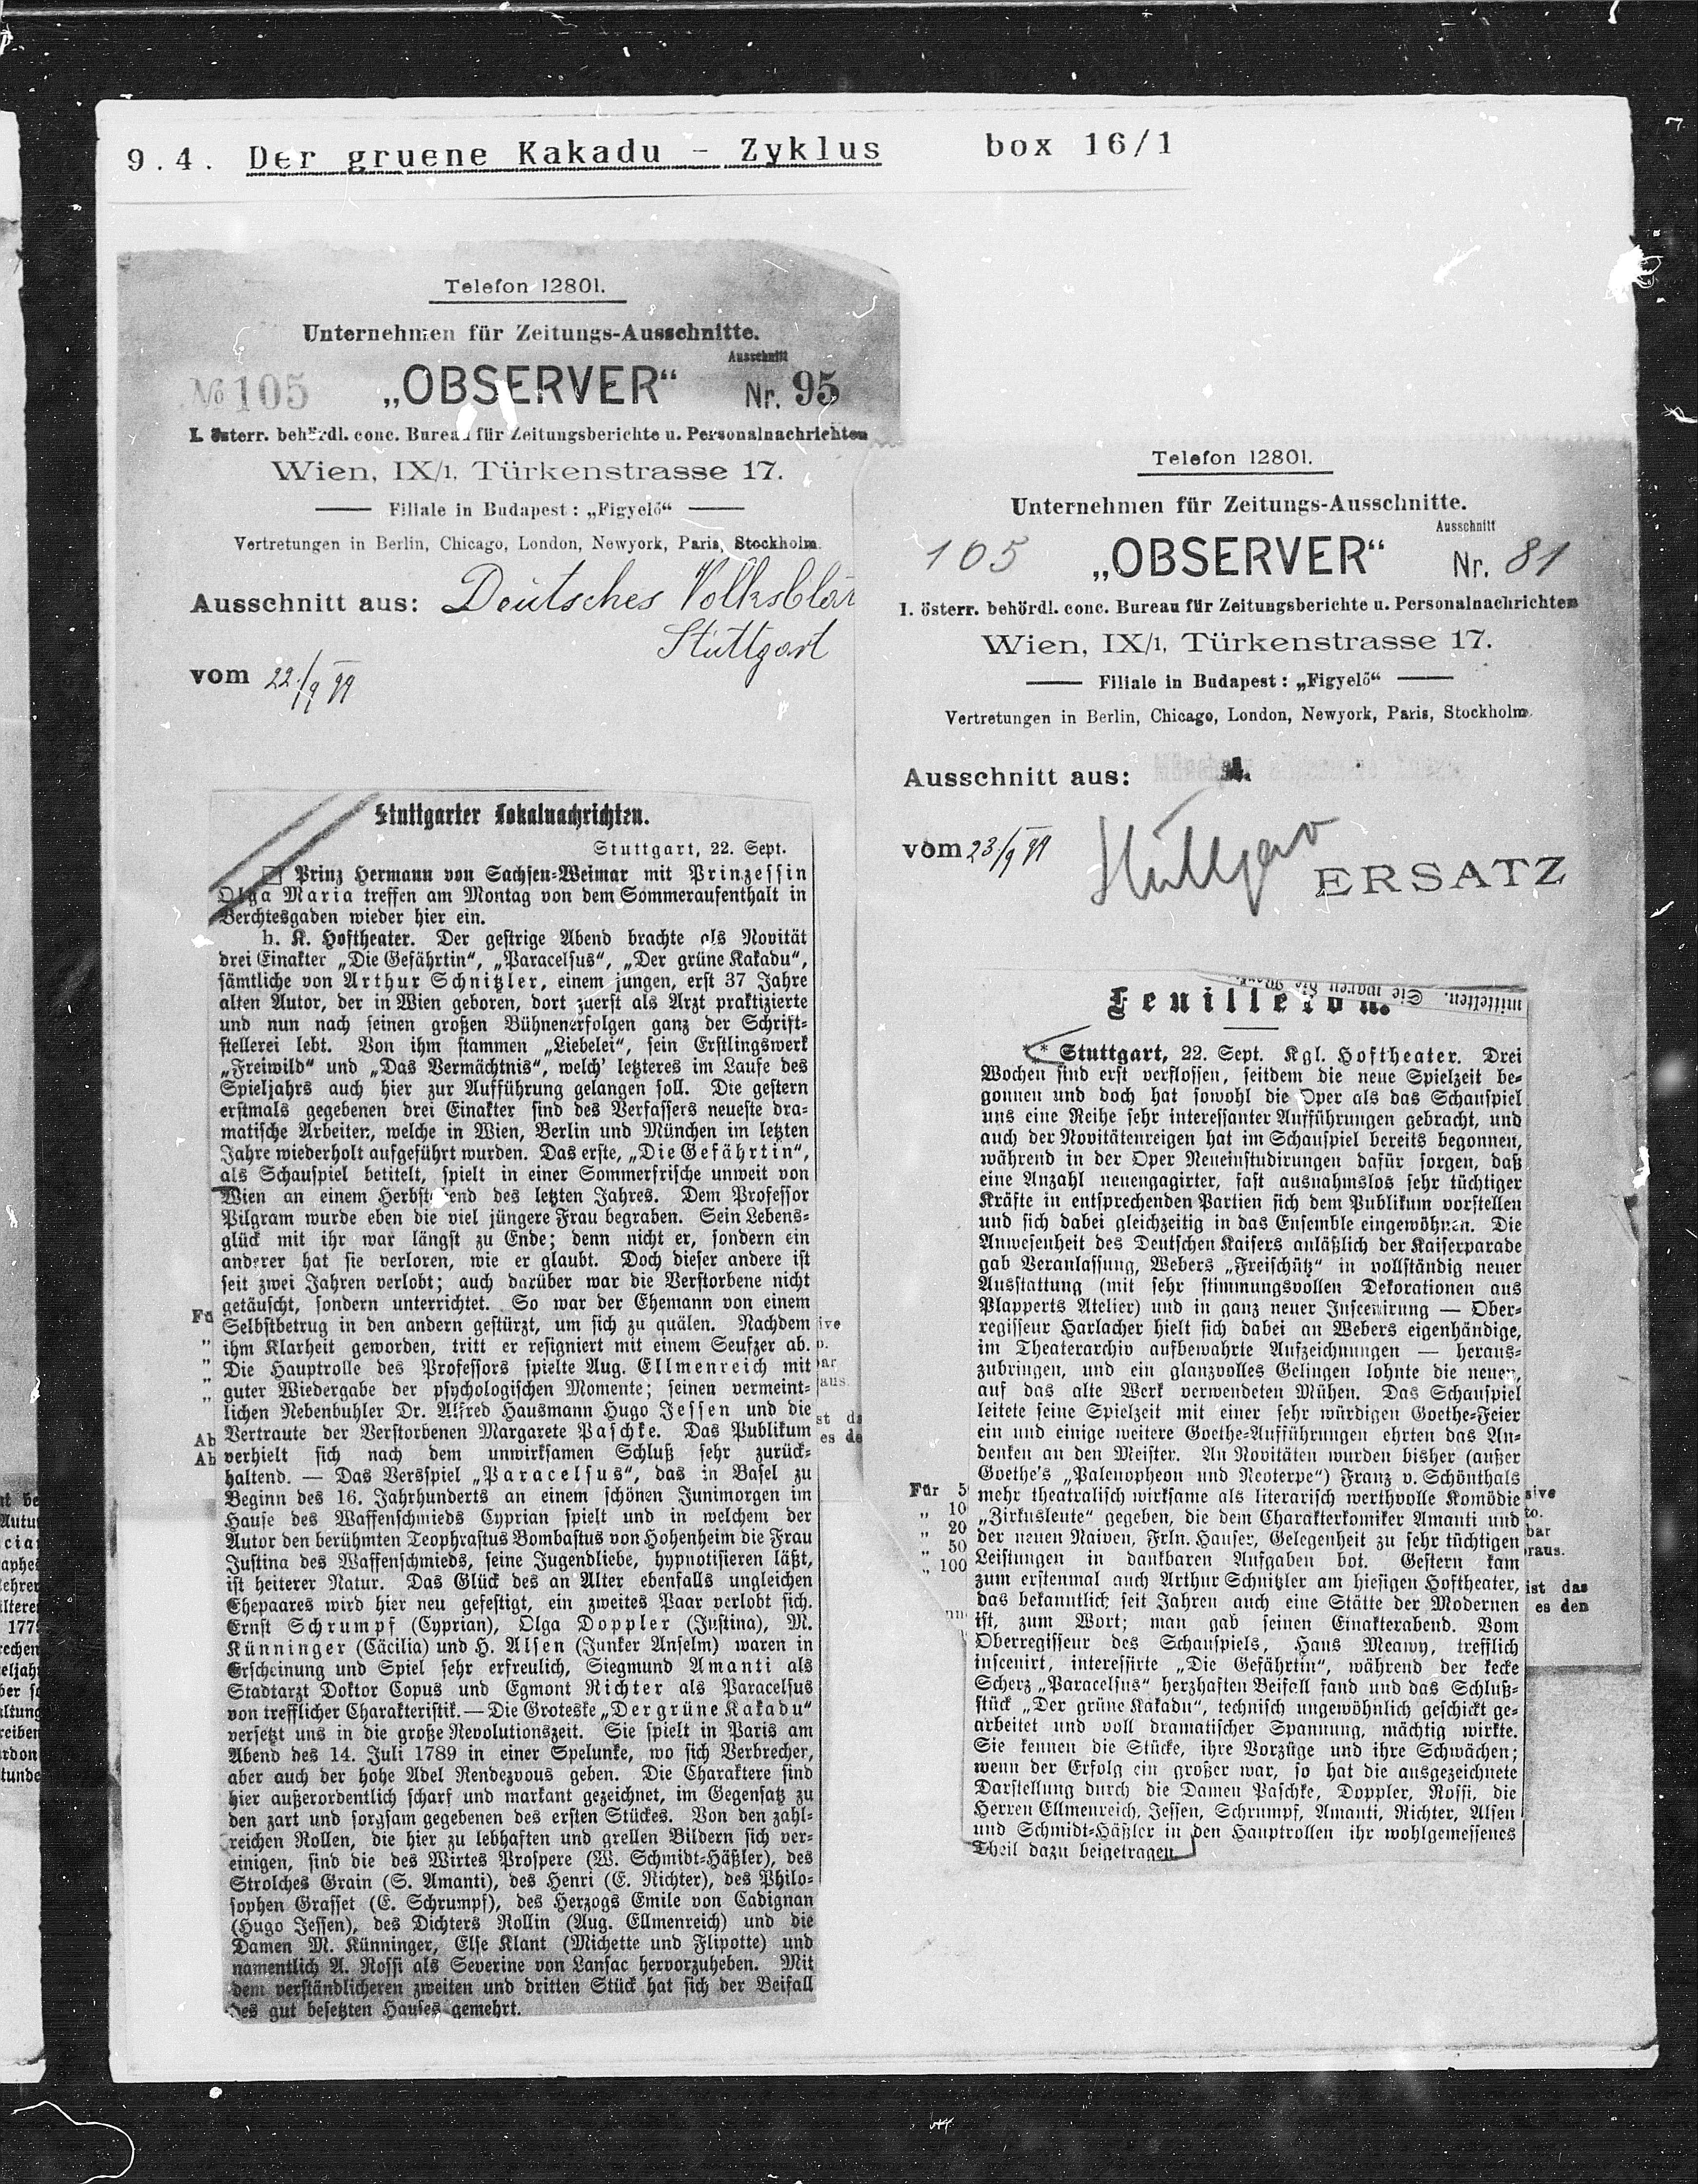 9.4. Der gruene Kakadu - Zyklus box 16/1
Telefon 12801.
Unternehmen für Zeitungs-Ausschnitte.
Ausschnitt
№ 105 „OBSERVER“ Nr. 95
I. österr. behördl. conc. Bureau für Zeitungsberichte u. Personalnachrichten
Wien, IX/1, Türkenstrasse 17.
Filiale in Budapest: „Figyelő“
Vertretungen in Berlin, Chicago, London, Newyork, Paris, Stockholm.
Ausschnitt aus: Deutsches Volksblat
Stuttgart
vom 22./9 99
Stuttgarter Lokalnachrichten.
Stuttgart, 22. Sept.
Prinz Hermann von Sachsen-Weimar mit Prinzessin
Olga Maria treffen am Montag von dem Sommeraufenthalt in
Berchtesgaden wieder hier ein.
h. K. Hoftheater. Der gestrige Abend brachte als Novität
drei Einakter „Die Gefährtin“, „Paracelsus“, „Der grüne Kakadu“,
sämtliche von Arthur Schnitzler, einem jungen, erst 37 Jahre
alten Autor, der in Wien geboren, dort zuerst als Arzt praktizierte
und nun nach seinen großen Bühnenerfolgen ganz der Schrift-
stellerei lebt. Von ihm stammen „Liebelei“, sein Erstlingswerk
„Freiwild“ und „Das Vermächtnis“, welch' letzteres im Laufe des
Spieljahrs auch hier zur Aufführung gelangen soll. Die gestern
erstmals gegebenen drei Einakter sind des Verfassers neueste dra-
matische Arbeiten, welche in Wien, Berlin und München im letzten
Jahre wiederholt aufgeführt wurden. Das erste, „Die Gefährtin“,
als Schauspiel betitelt, spielt in einer Sommerfrische unweit von
Wien an einem Herbstabend des letzten Jahres. Dem Professor
Pilgram wurde eben die viel jüngere Frau begraben. Sein Lebens-
glück mit ihr war längst zu Ende; denn nicht er, sondern ein
anderer hat sie verloren, wie er glaubt. Doch dieser andere ist
seit zwei Jahren verlobt; auch darüber war die Verstorbene nicht
getäuscht, sondern unterrichtet. So war der Ehemann von einem
Selbstbetrug in den andern gestürzt, um sich zu quälen. Nachdem
ihm Klarheit geworden, tritt er resigniert mit einem Seufzer ab.
Die Hauptrolle des Professors spielte Aug. Ellmenreich mit
guter Wiedergabe der psychologischen Momente; seinen vermeint-
lichen Nebenbuhler Dr. Alfred Hausmann Hugo Jessen und die
Vertraute der Verstorbenen Margarete Paschke. Das Publikum
verhielt sich nach dem unwirksamen Schluß sehr zurück-
haltend. — Das Versspiel „Paracelsus“, das in Basel zu
Beginn des 16. Jahrhunderts an einem schönen Junimorgen im
Hause des Waffenschmieds Cyprian spielt und in welchem der
Autor den berühmten Teophrastus Bombastus von Hohenheim die Frau
Justina des Waffenschmieds, seine Jugendliebe, hypnotisieren läßt,
ist heiterer Natur. Das Glück des an Alter ebenfalls ungleichen
Ehepaares wird hier neu gefestigt, ein zweites Paar verlobt sich.
Ernst Schrumpf (Cyprian), Olga Doppler (Justina), M.
Künninger (Cäcilia) und H. Alsen (Junker Anselm) waren in
Erscheinung und Spiel sehr erfreulich, Siegmund Amanti als
Stadtarzt Doktor Copus und Egmont Richter als Paracelsus
von trefflicher Charakteristik. — Die Groteske „Der grüne Kakadu“
versetzt uns in die große Revolutionszeit. Sie spielt in Paris am
Abend des 14. Juli 1789 in einer Spelunke, wo sich Verbrecher,
aber auch der hohe Adel Rendezvous geben. Die Charaktere sind
hier außerordentlich scharf und markant gezeichnet, im Gegensatz zu
den zart und sorgsam gegebenen des ersten Stückes. Von den zahl-
reichen Rollen, die hier zu lebhaften und grellen Bildern sich ver-
einigen, sind die des Wirtes Prospere (W. Schmidt-Häßler), des
Strolches Grain (S. Amanti), des Henri (E. Richter), des Philo-
sophen Grasset (E. Schrumpf), des Herzogs Emile von Cadignan
(Hugo Jessen), des Dichters Rollin (Aug. Ellmenreich) und die
Damen M. Künninger, Else Klant (Michette und Flipotte) und
namentlich A. Rossi als Severine von Lansac hervorzuheben. Mit
dem verständlicheren zweiten und dritten Stück hat sich der Beifall
des gut besetzten Hauses gemehrt.
Telefon 12801.
Unternehmen für Zeitungs-Ausschnitte.
Ausschnitt
105 „OBSERVER“ Nr. 81
I. österr. behördl. conc. Bureau für Zeitungsberichte u. Personalnachrichten
Wien, IX/1, Türkenstrasse 17.
Filiale in Budapest: „Figyelő“
Vertretungen in Berlin, Chicago, London, Newyork, Paris, Stockholm.
Ausschnitt aus:
vom 23./9 99
ERSATZ
mittelten. Sie waren die
Feuilleton.
** Stuttgart, 22. Sept. Kgl. Hoftheater. Drei
Wochen sind erst verflossen, seitdem die neue Spielzeit be-
gonnen und doch hat sowohl die Oper als das Schauspiel
uns eine Reihe sehr interessanter Aufführungen gebracht, und
auch der Novitätenreigen hat im Schauspiel bereits begonnen,
während in der Oper Neueinstudirungen dafür sorgen, daß
eine Anzahl neuengagirter, fast ausnahmslos sehr tüchtiger
Kräfte in entsprechenden Partien sich dem Publikum vorstellen
und sich dabei gleichzeitig in das Ensemble eingewöhnen. Die
Anwesenheit des Deutschen Kaisers anläßlich der Kaiserparade
gab Veranlassung, Webers „Freischütz“ in vollständig neuer
Ausstattung (mit sehr stimmungsvollen Dekorationen aus
Plapperts Atelier) und in ganz neuer Inscenirung — Ober-
regisseur Harlacher hielt sich dabei an Webers eigenhändige,
im Theaterarchiv aufbewahrte Aufzeichnungen — heraus-
zubringen, und ein glanzvolles Gelingen lohnte die neuen,
auf das alte Werk verwendeten Mühen. Das Schauspiel
leitete seine Spielzeit mit einer sehr würdigen Goethe-Feier
ein und einige weitere Goethe-Aufführungen ehrten das An-
denken an den Meister. An Novitäten wurden bisher (außer
Goethe's „Paleuopheon und Neoterpe“) Franz v. Schönthals
mehr theatralisch wirksame als literarisch werthvolle Komödie
„Zirkusleute“ gegeben, die dem Charakterkomiker Amanti und
der neuen Naiven, Frln. Hauser, Gelegenheit zu sehr tüchtigen
Leistungen in dankbaren Aufgaben bot. Gestern kam
zum erstenmal auch Arthur Schnitzler am hiesigen Hoftheater,
das bekanntlich seit Jahren auch eine Stätte der Modernen
ist, zum Wort; man gab seinen Einakterabend. Vom
Oberregisseur des Schauspiels, Hans Meawy, trefflich
inscenirt, interessirte „Die Gefährtin“, während der kecke
Scherz „Paracelsus“ herzhaften Beifall fand und das Schluß-
stück „Der grüne Kakadu“, technisch ungewöhnlich geschickt ge-
arbeitet und voll dramatischer Spannung, mächtig wirkte.
Sie kennen die Stücke, ihre Vorzüge und ihre Schwächen;
wenn der Erfolg ein großer war, so hat die ausgezeichnete
Darstellung durch die Damen Paschke, Doppler, Rossi, die
Herren Ellmenreich, Jessen, Schrumpf, Amanti, Richter, Alsen
und Schmidt-Häßler in den Hauptrollen ihr wohlgemessenes
Theil dazu beigetragen